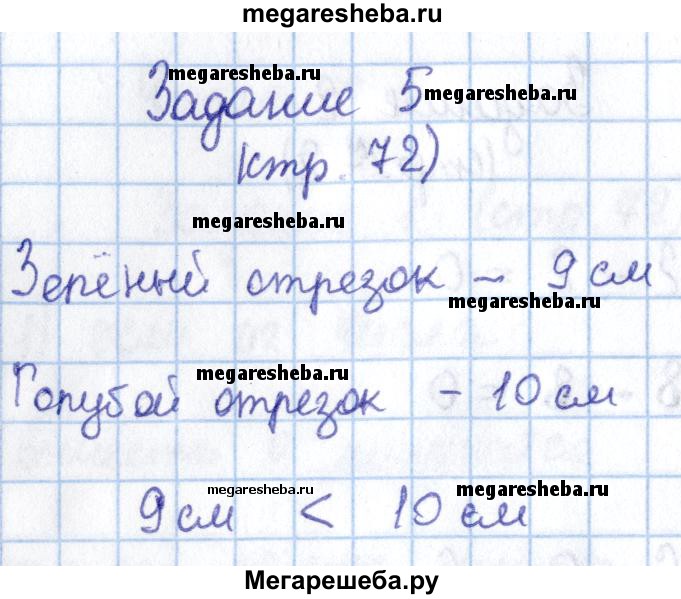 megaresheba.ru
megaresheba.ru
Задание 5
megaresheba.ru
(стр. 72)
megaresheba.ru
Зелёный отрезок – 9 см
megaresheba.ru
megaresheba.ru
Голубой отрезок – 10 см
megaresheba.ru
megaresheba.ru
9 см < 10 см
Мегарешеба.ру